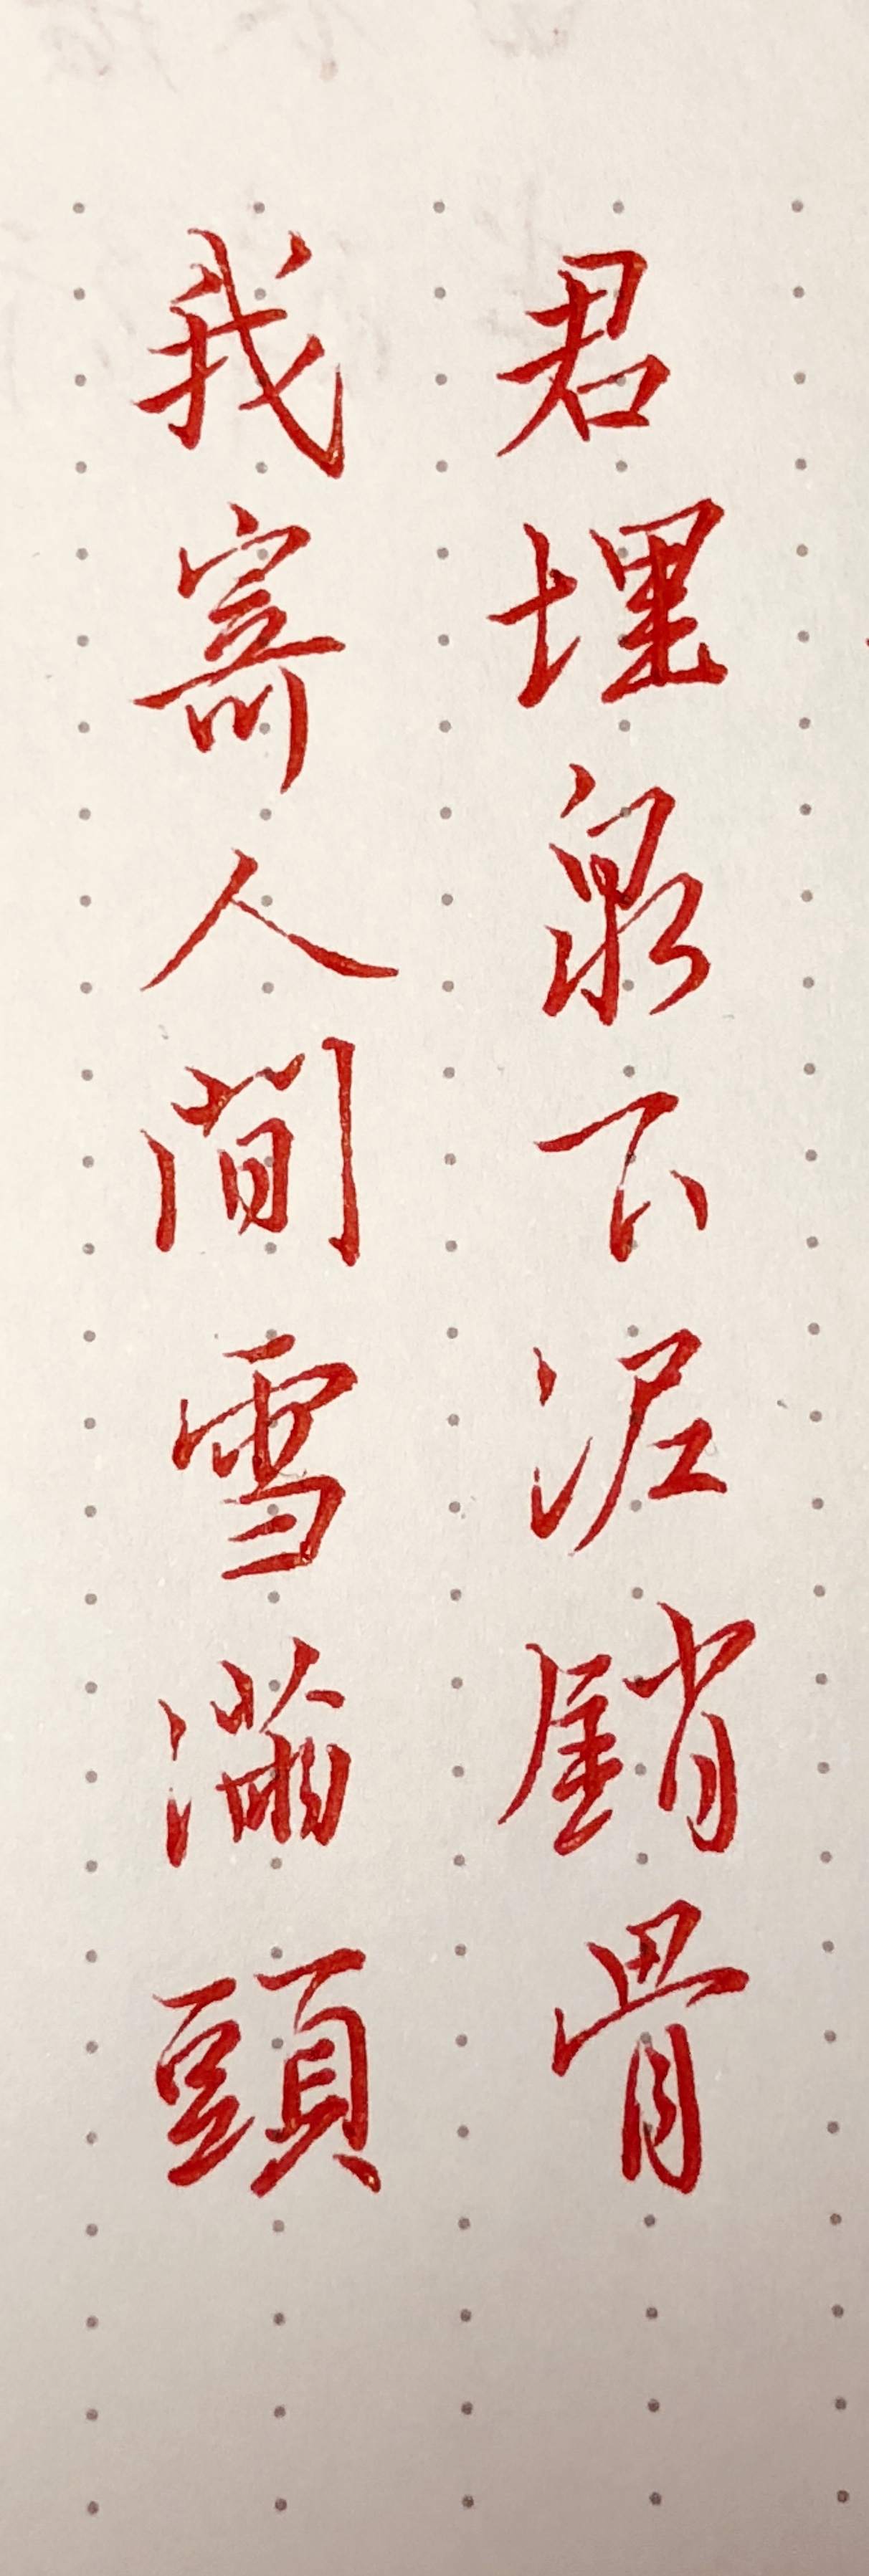 君埋泉下泥銷骨
我寄人間雪滿頭